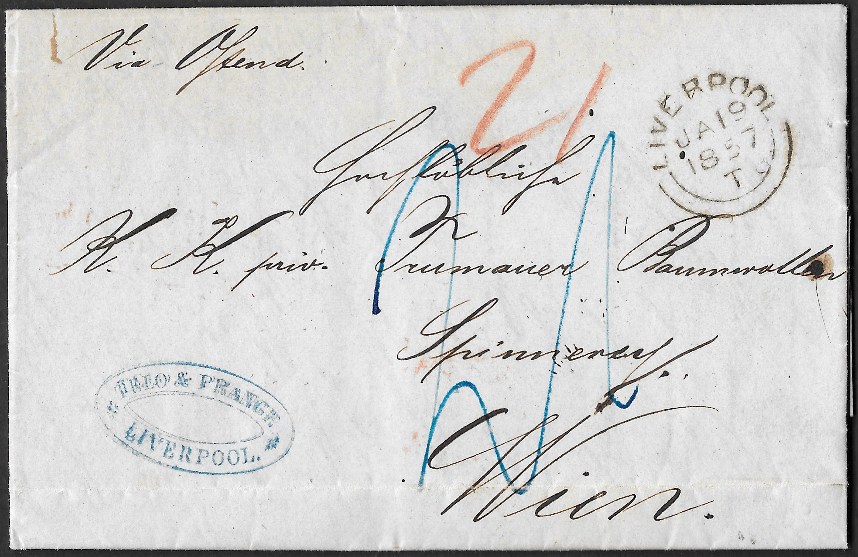 Via Ostend.
21
LIVERPOOL
JA 19
1857
T
Hochlöbliche
K. K. priv. Trumauer Baumwollen
Spinnerey.
Wien.
& PRANGE
LIVERPOOL.